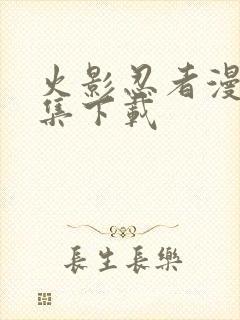 火影忍者漫
集下載
長生長樂